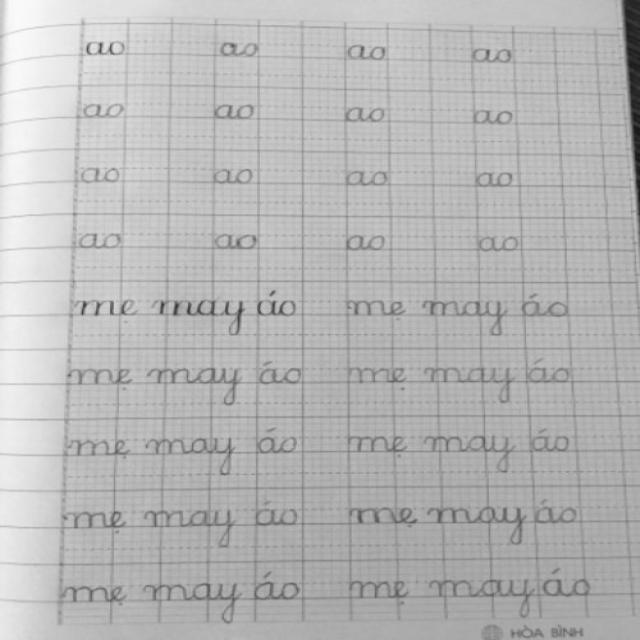 ao ao ao ao
ao ao ao ao
ao ao ao ao
ao ao ao ao
mẹ may áo mẹ may áo
mẹ may áo mẹ may áo
mẹ may áo mẹ may áo
mẹ may áo mẹ may áo
mẹ may áo mẹ may áo
HÒA BÌNH